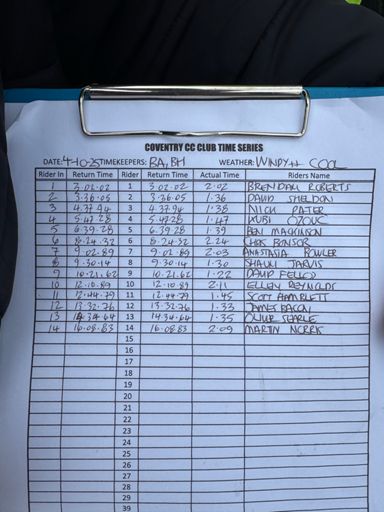 COVENTRY CC CLUB TIME SERIES
DATE: 4-10-25 TIMEKEEPERS: BA, BH WEATHER: WINDY++ COOL
Rider In Return Time Rider Return Time Actual Time Riders Name
1 3.02.02 1 3.02.02 2.02 BRENDAN ROBERTS
2 3.36.05 2 3.36.05 1.36 DAVID SHELDON
3 4.37.94 3 4.37.94 1.38 NICK PATER
4 5.47.28 4 5.47.28 1.47 KUBI
5 6.39.28 5 6.39.28 1.39 BEN MACKINNON
6 8.24.32 6 8.24.32 2.24 CHRIS BONSOR
7 9.02.89 7 9.02.89 2.03 ANASTASIA FOWLER
8 9.30.14 8 9.30.14 1.30 SHAUN JARVIS
9 10.21.62 9 10.21.62 1.22 DAVID
10 12.10.89 10 12.10.89 2.11 ELLEY REYNOLDS
11 12.44.79 11 12.44.79 1.45 SCOTT HAMBLETT
12 13.32.76 12 13.32.76 1.33 JAMES BACON
13 14.34.64 13 14.34.64 1.35 OLIVER SEARLE
14 16.08.83 14 16.08.83 2.09 MARTIN NORRIS
15
16
17
18
19
20
21
22
23
24
25
26
27
28
29
39